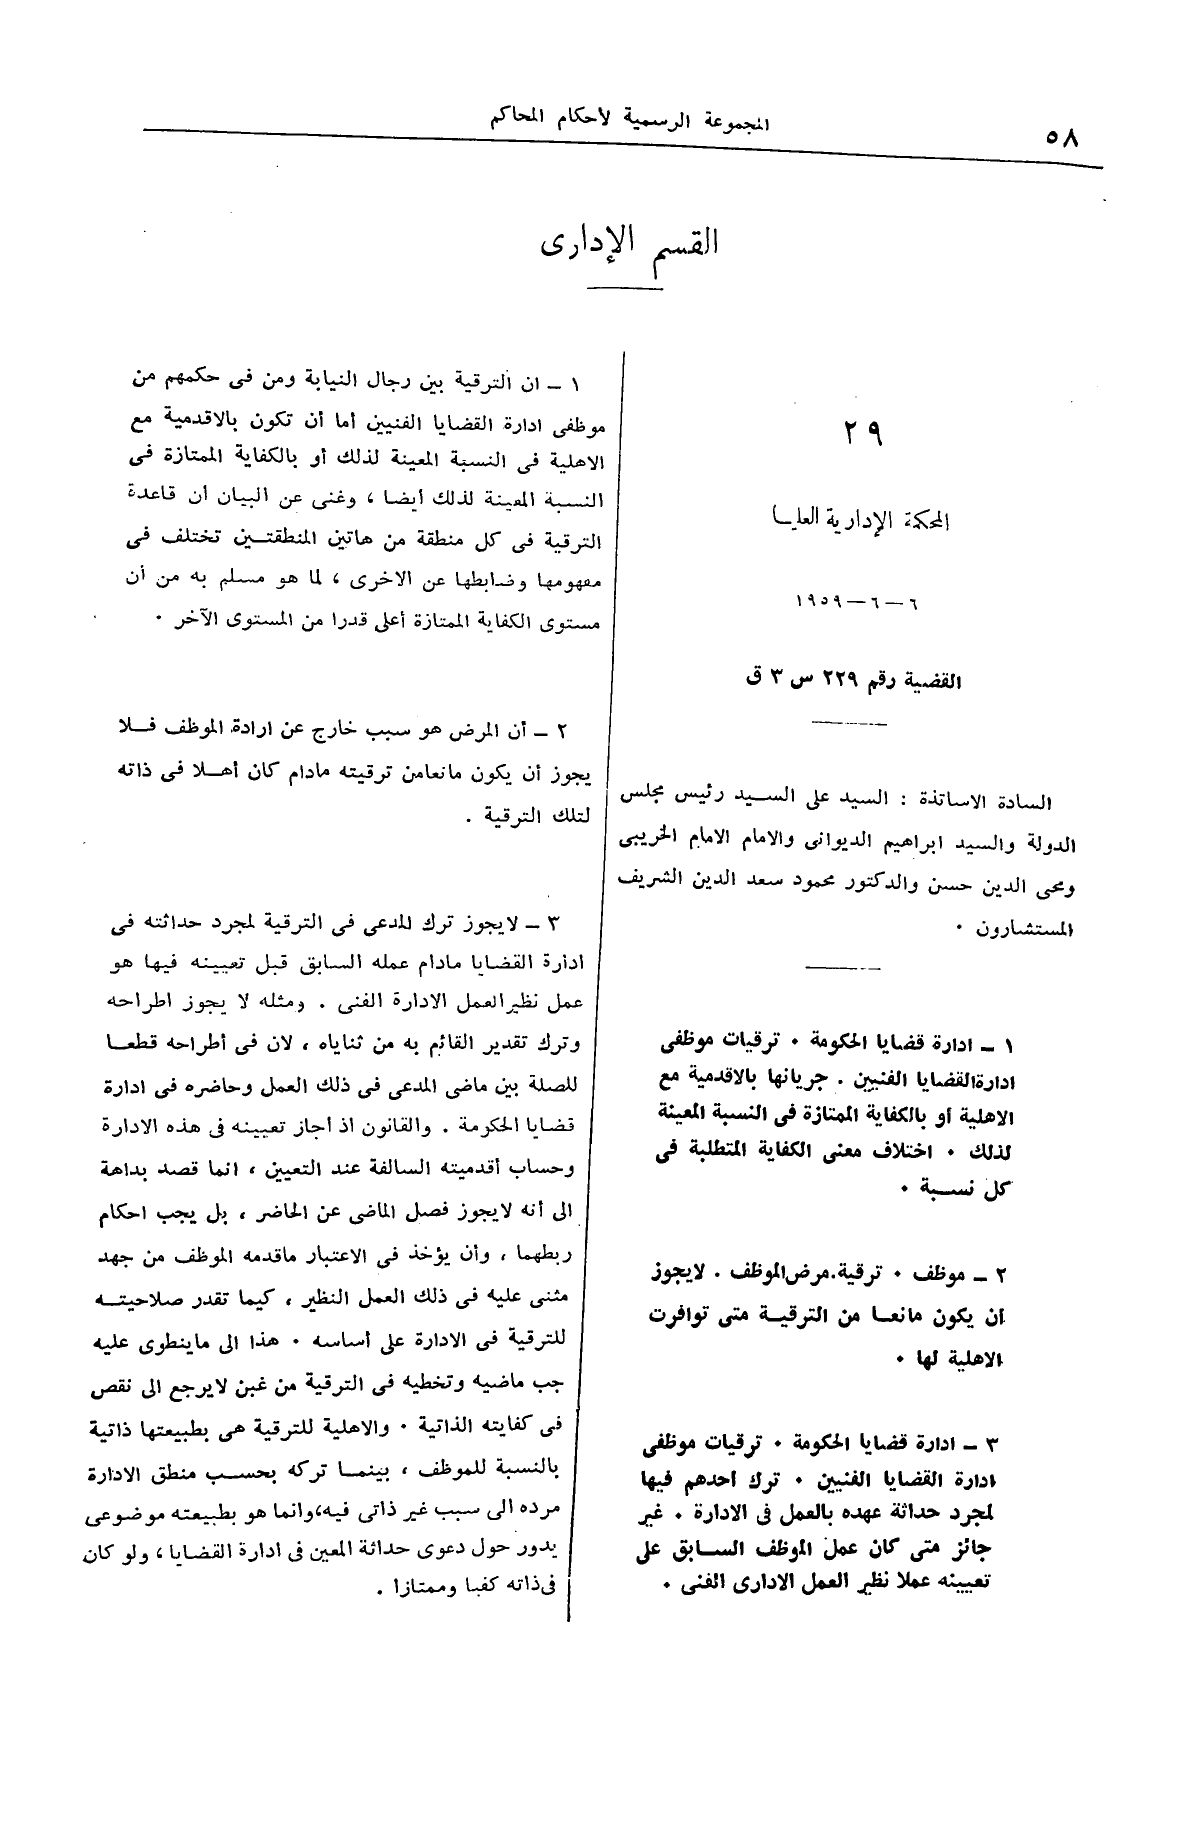 ٥٨
المجموعة الرسمية لأحكام المحاكم
القسم الإدارى
٢٩
المحكمة الإدارية العليا
٦ – ٦ – ١٩٥٩
القضية رقم ٢٢٩ س ٣ ق
السادة الاساتذة : السيد على السيد رئيس مجلس
الدولة والسيد ابراهيم الديوانى والامام الامام الخريبى
ومحى الدين حسن والدكتور محمود سعد الدين الشريف
المستشارون .
١ – ادارة قضايا الحكومة . ترقيات موظفى
ادارة القضايا الفنيين . جريانها بالاقدمية مع
الاهلية أو بالكفاية الممتازة فى النسبة المعينة
لذلك . اختلاف معنى الكفاية المتطلبة فى
كل نسبة .
٢ – موظف . ترقية . مرض الموظف . لايجوز
أن يكون مانعا من الترقية متى توافرت
الاهلية لها .
٣ – ادارة قضايا الحكومة . ترقيات موظفى
ادارة القضايا الفنيين . ترك احدهم فيها
لمجرد حداثة عهده بالعمل فى الادارة . غير
جائز متى كان عمل الموظف السابق على
تعيينه عملا نظير العمل الادارى الفنى .
١ – ان الترقية بين رجال النيابة ومن فى حكمهم من
موظفى ادارة القضايا الفنيين أما أن تكون بالاقدمية مع
الاهلية فى النسبة المعينة لذلك أو بالكفاية الممتازة فى
النسبة المعينة لذلك أيضا ، وغنى عن البيان أن قاعدة
الترقية فى كل منطقة من هاتين المنطقتين تختلف فى
مفهومها وضابطها عن الاخرى ، لما هو مسلم به من أن
مستوى الكفاية الممتازة أعلى قدرا من المستوى الآخر .
٢ – أن المرض هو سبب خارج عن ارادة الموظف فلا
يجوز أن يكون مانعامن ترقيته مادام كان أهلا فى ذاته
لتلك الترقية .
٣ – لايجوز ترك المدعى فى الترقية لمجرد حداثته فى
ادارة القضايا مادام عمله السابق قبل تعيينه فيها هو
عمل نظير العمل الادارة الفنى . ومثله لا يجوز اطراحه
وترك تقدير القائم به من ثناياه ، لان فى أطراحه قطعا
للصلة بين ماضى المدعى فى ذلك العمل وحاضره فى ادارة
قضايا الحكومة . والقانون اذ أجاز تعيينه فى هذه الادارة
وحساب أقدميته السالفة عند التعيين ، انما قصد بداهة
الى أنه لايجوز فصل الماضى عن الحاضر ، بل يجب احكام
ربطهما ، وأن يؤخذ فى الاعتبار ماقدمه الموظف من جهد
مثنى عليه فى ذلك العمل النظير ، كيما تقدر صلاحيته
للترقية فى الادارة على أساسه . هذا الى ماينطوى عليه
جب ماضيه وتخطيه فى الترقية من غبن لايرجع الى نقص
فى كفايته الذاتية . والاهلية للترقية هى بطبيعتها ذاتية
بالنسبة للموظف ، بينما تركه بحسب منطق الادارة
مرده الى سبب غير ذاتى فيه، وانما هو بطبيعته موضوعى
يدور حول دعوى حداثة المعين فى ادارة القضايا ، ولو كان
فى ذاته كفيا وممتازا .